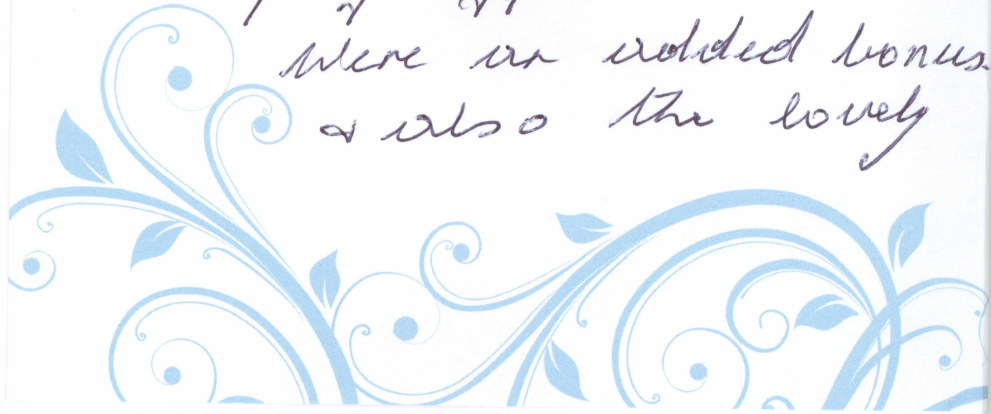 were an added bonus.
& also the lovely